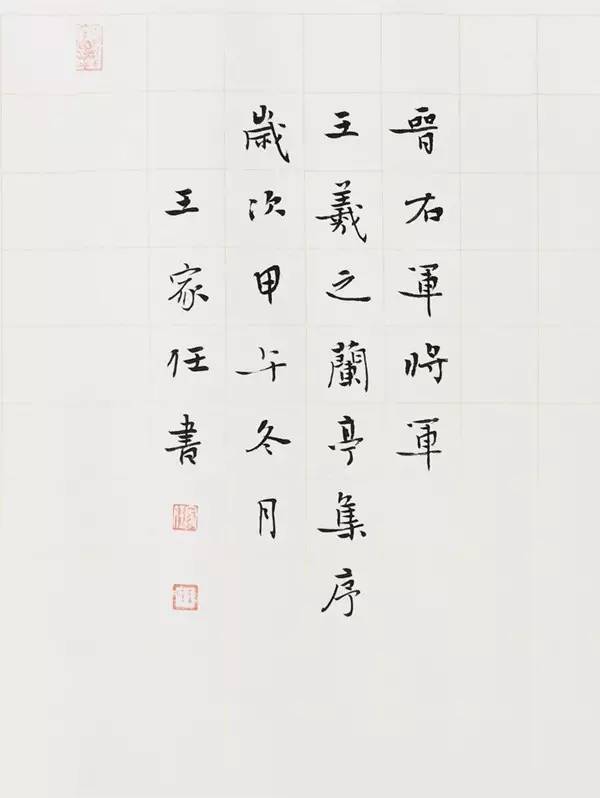 晋右軍將軍
王羲之蘭亭集序
歲次甲午冬月
王家任書